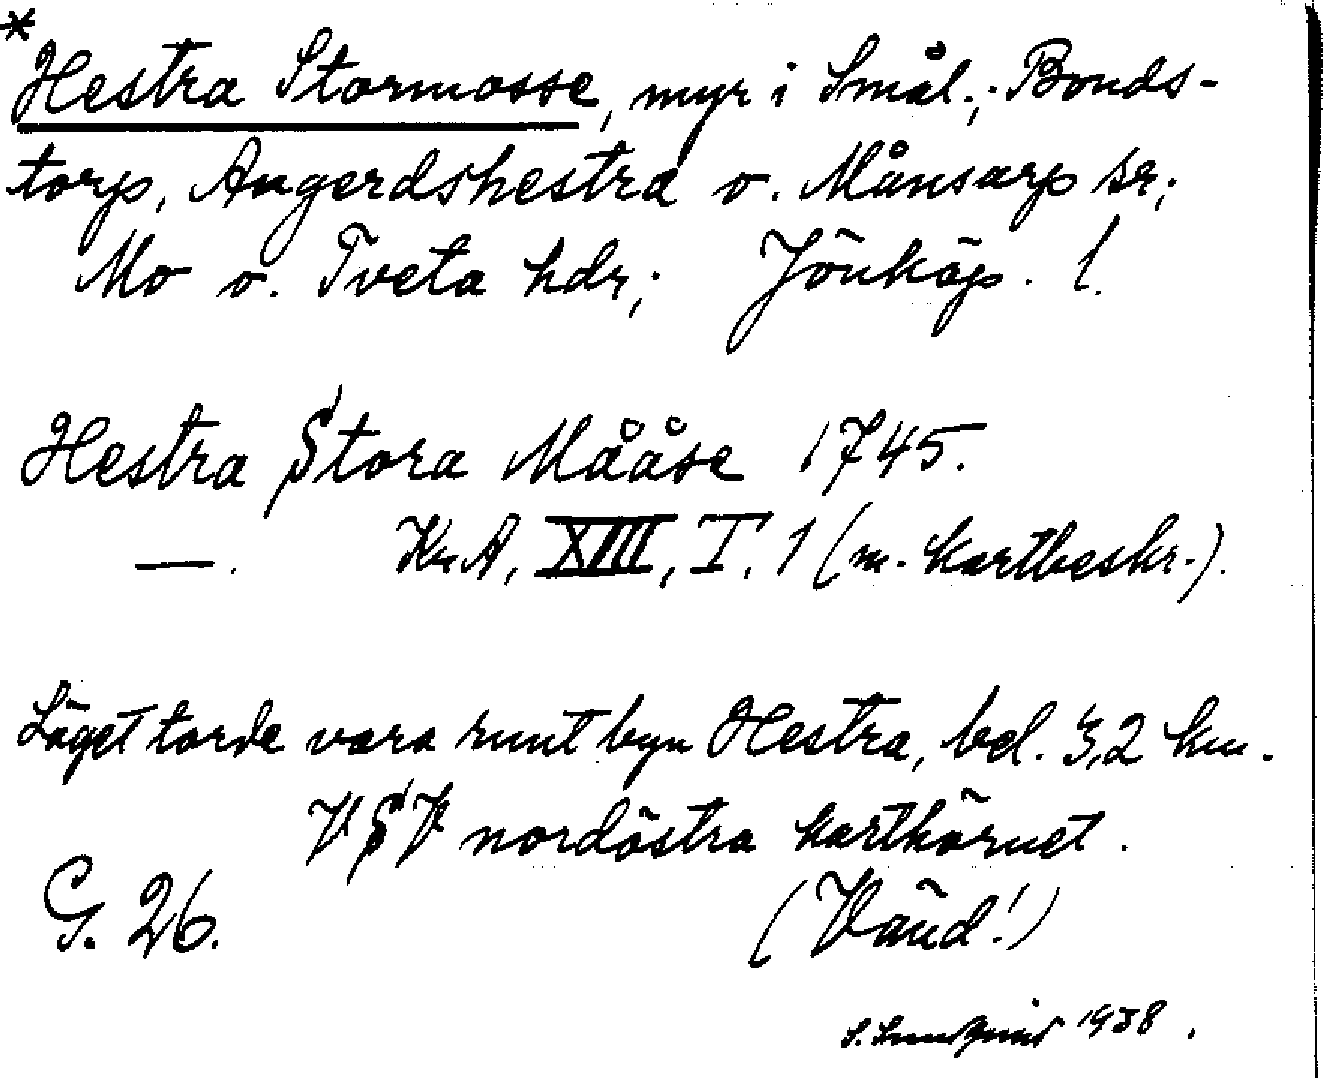 *
Hestra Stormosse, myr i Smål.; Bonds-
torp, Angerdshestra o. Månsarp sr;
Mo o. Tveta hdr; Jönköp. l.
Hestra Stora Mååse 1745.
—. Kr.A, XIII, I. 1 (m. kartbeskr.).
Läget torde vara runt byn Hestra, bel. 3,2 km.
VSV nordöstra karthörnet.
G. 26. (Vänd!)
S. Lundquist 1938.